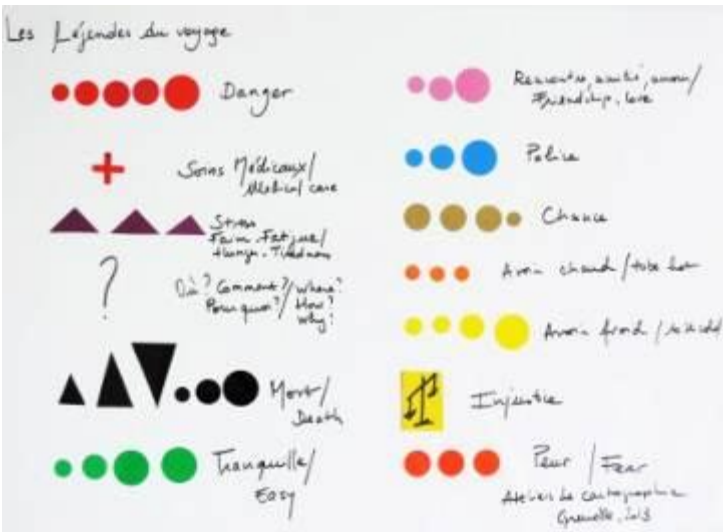 Les Légendes du voyage
Danger
Soins Médicaux/
Medical care
Stress
Faim. Fatigue/
Hunger. Tiredness
?
Où? Comment?/Where?
Pourquoi?/How?
Why?
Mort/
Death
Tranquille/
Easy
Rencontre, amitié, amour/
Friendship, love
Police
Chance
Avoir chaud/to be hot
Avoir froid/to be cold
Injustice
Peur/Fear
Atelier de cartographie
Grenoble, 2013